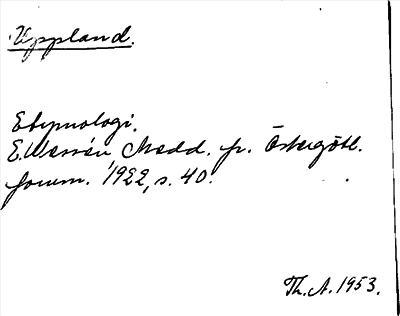 Uppland.
Etymologi.
E. Wessén, Medd. fr. Östergötl.
fornm. 1922, s. 40.
Th. A. 1953.